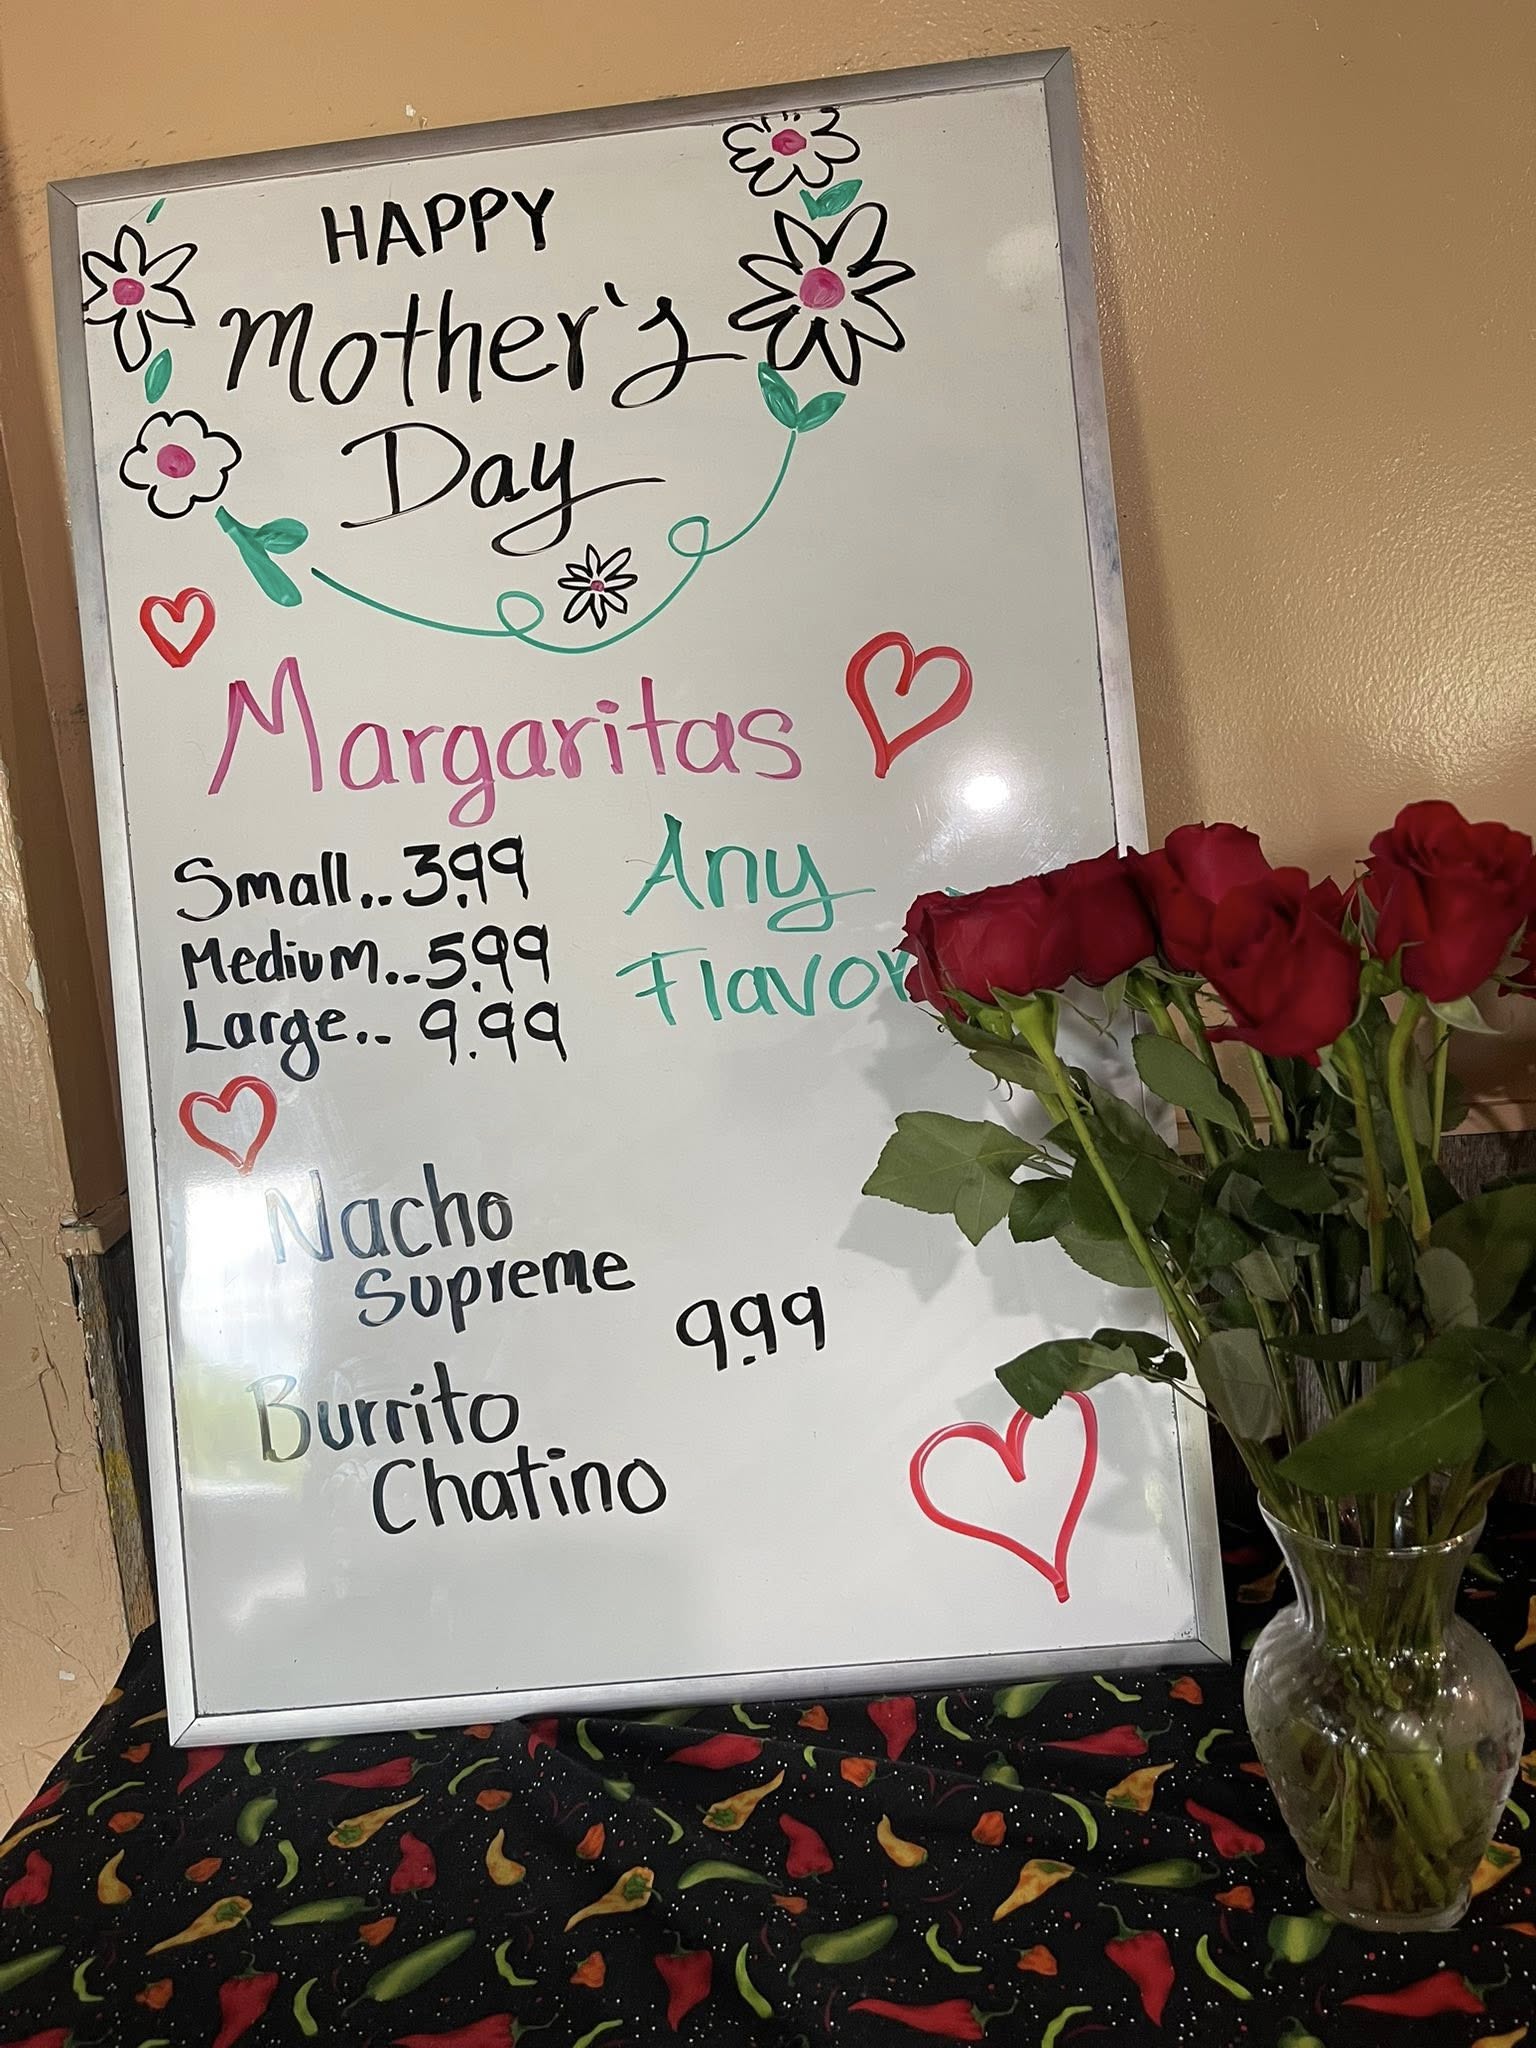 HAPPY
Mother's
Day
Margaritas
Small..3.99
Medium..5.99
Large..9.99
Any
Flavor
Nacho
Supreme
9.99
Burrito
Chatino